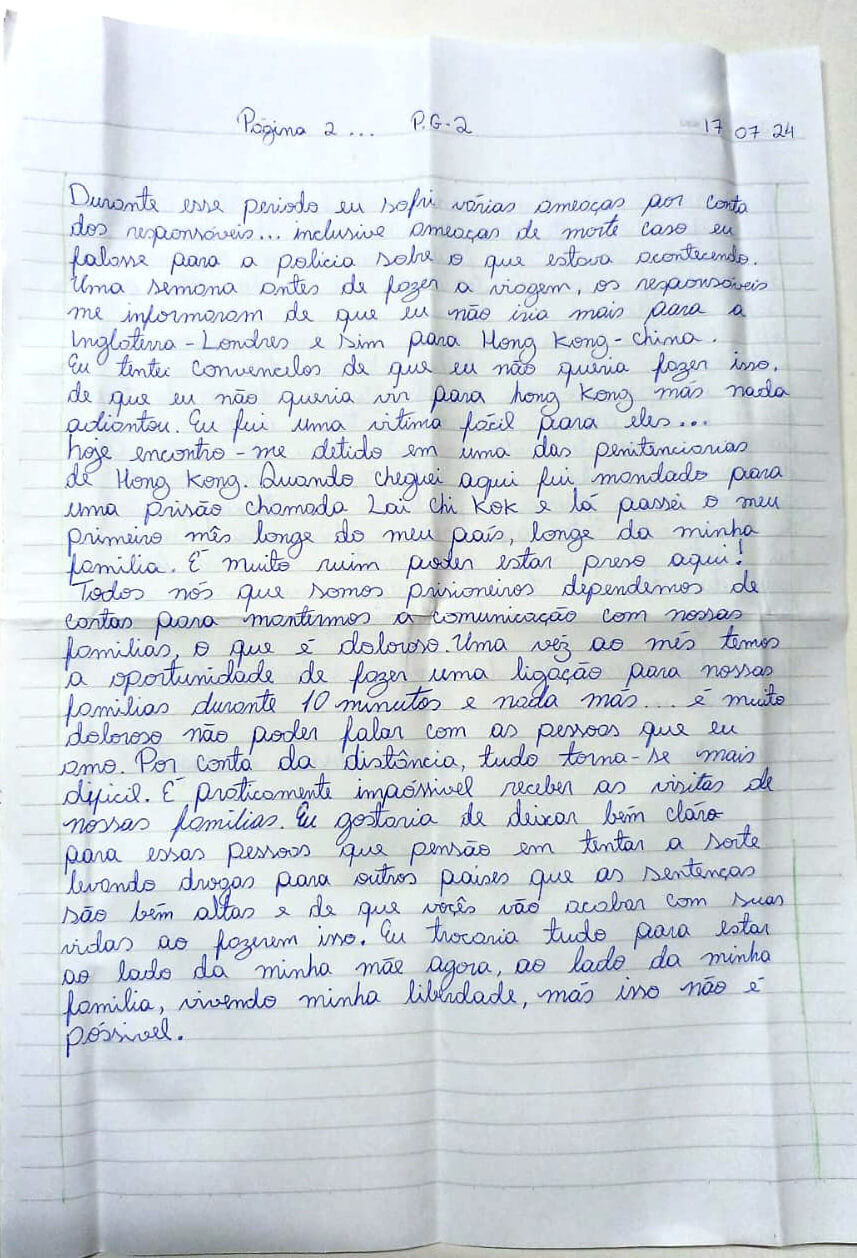 Página 2 ... P.G.2 17 07 24
Durante esse periodo eu sofri várias ameaças por conta
dos responsáveis... inclusive ameaças de morte caso eu
falasse para a policia sobre o que estava acontecendo.
Uma semana antes de fazer a viagem, os responsáveis
me informaram de que eu não iria mais para a
Inglaterra - Londres e sim para Hong Kong - China.
Eu tentei convencelos de que eu não queria fazer isso,
de que eu não queria vir para hong Kong más nada
adiantou. Eu fui uma vitima fácil para eles...
hoje encontro-me detido em uma das penitenciarias
de Hong Kong. Quando cheguei aqui fui mandado para
uma prisão chamada Lai Chi Kok e lá passei o meu
primeiro mês longe do meu país, longe da minha
familia. É muito ruim poder estar preso aqui!
Todos nós que somos prisioneiros dependemos de
cartas para mantermos a comunicação com nossas
familias, o que é doloroso. Uma vêz ao mês temos
a oportunidade de fazer uma ligação para nossas
familias durante 10 minutos e nada más... é muito
doloroso não poder falar com as pessoas que eu
amo. Por conta da distância, tudo torna-se mais
dificil. É praticamente impóssivel receber as visitas de
nossas familias. Eu gostaria de deixar bém claro
para essas pessoas que pensão em tentar a sorte
levando drogas para outros paises que as sentenças
são bém altas e de que voçês vão acabar com suas
vidas ao fazerem isso. Eu trocaria tudo para estar
ao lado da minha mãe agora, ao lado da minha
familia, vivendo minha liberdade, más isso não é
póssivel.